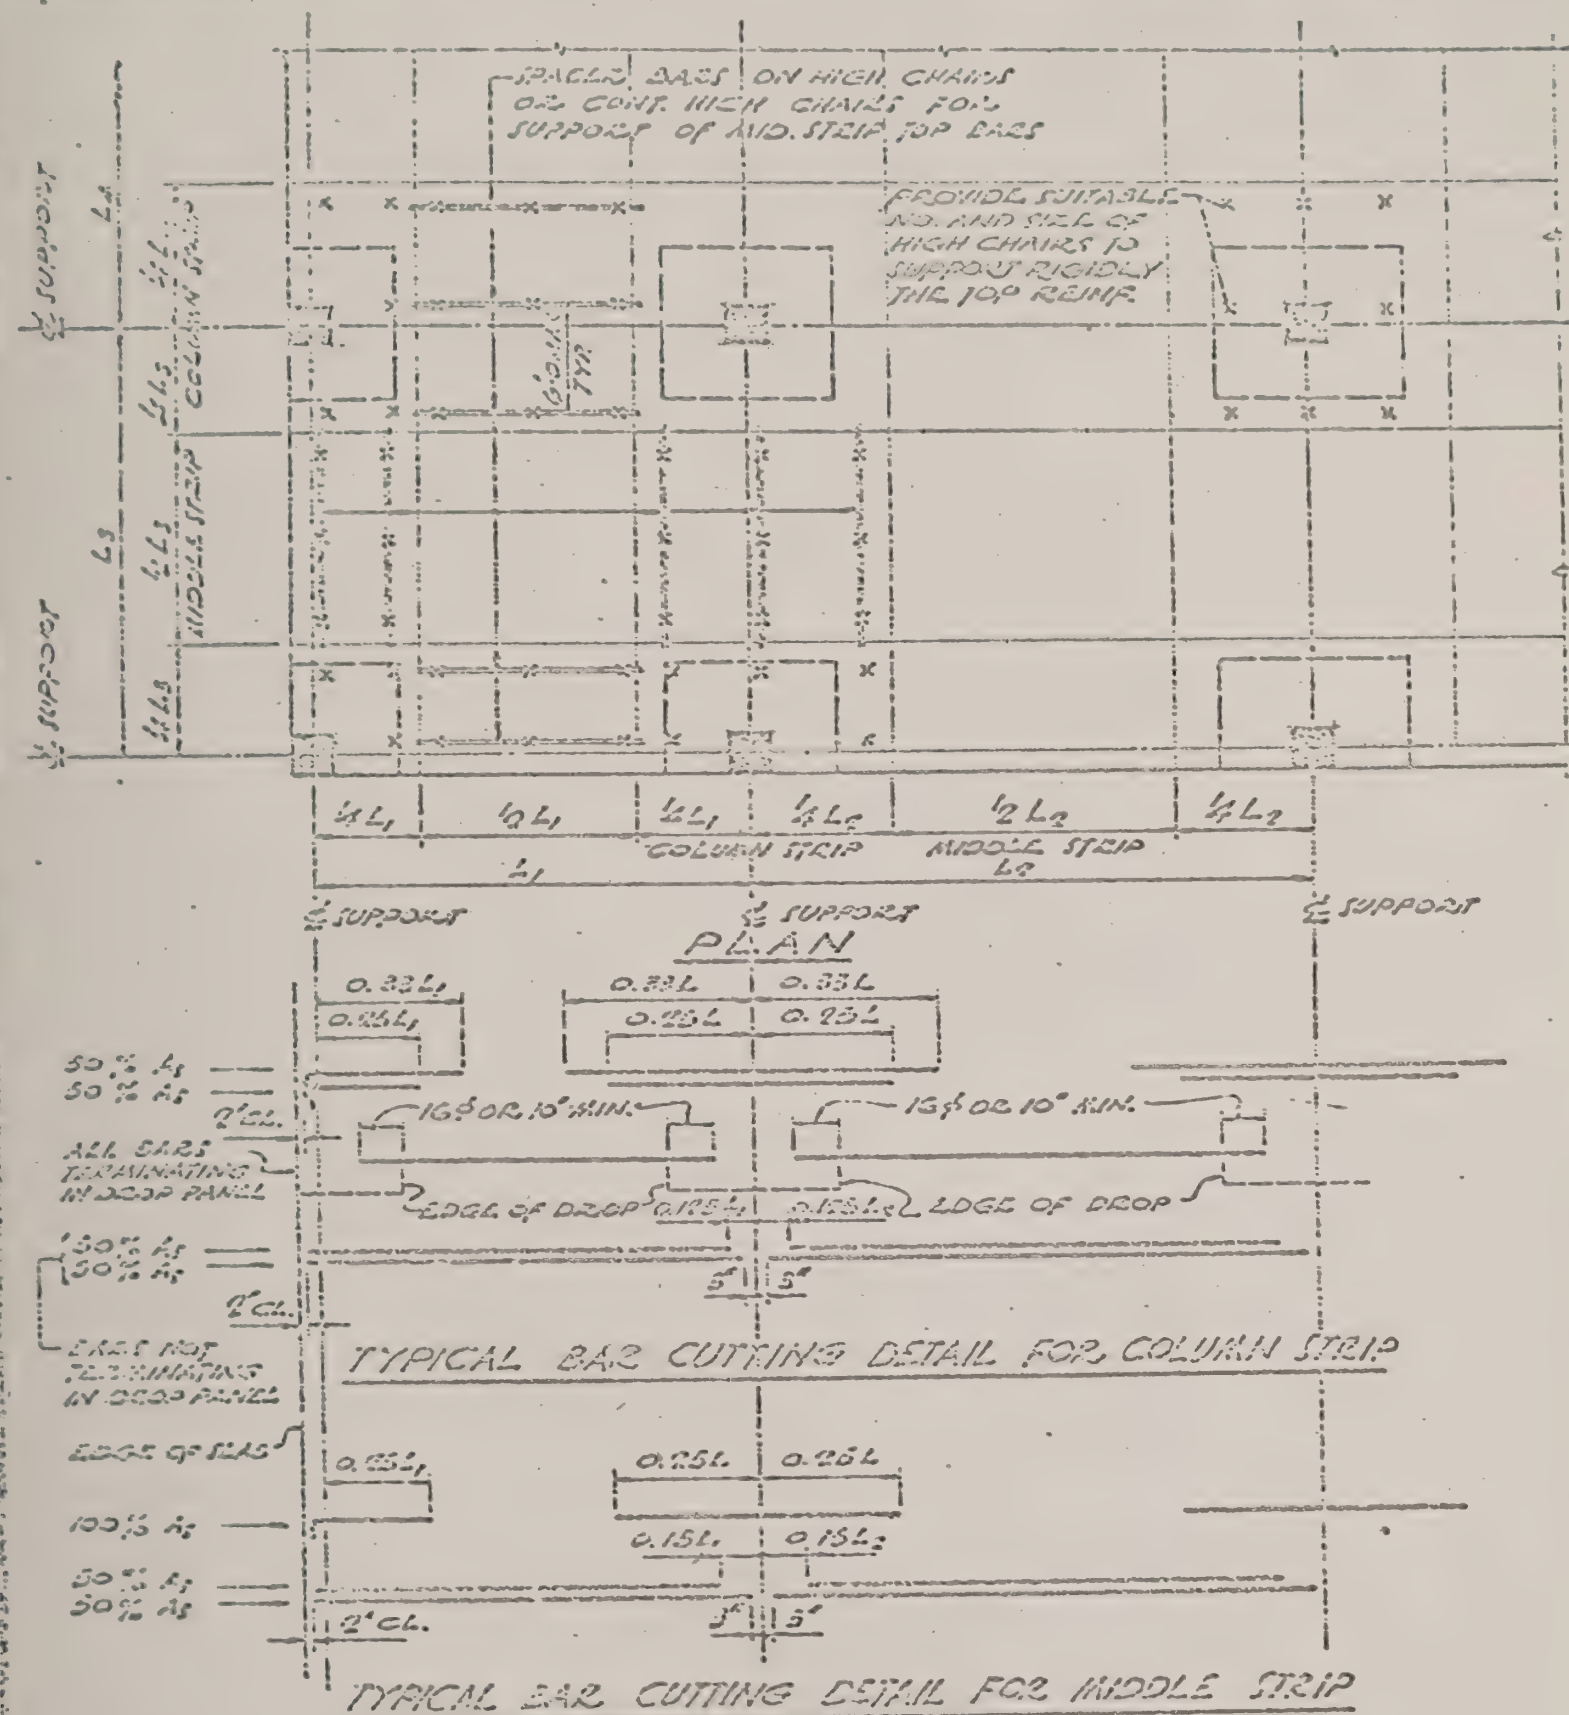 SPACER BARS ON HIGH CHAIRS
OR CONT. HIGH CHAIRS FOR
SUPPORT OF MID. STRIP TOP BARS
PROVIDE SUITABLE
NO. AND SIZE OF
HIGH CHAIRS TO
SUPPORT RIGIDLY
THE TOP REINF.
℄ SUPPORT
COLUMN STRIP
TYP.
L3
MIDDLE STRIP
℄ SUPPORT
¼ L3
¼ L1 ½ L1 ¼ L1 ¼ L2 ½ L2 ¼ L2
COLUMN STRIP MIDDLE STRIP
L1 L2
℄ SUPPORT ℄ SUPPORT ℄ SUPPORT
PLAN
0.33L1 0.33L 0.33L
0.25L1 0.25L 0.25L
50% As
50% As
2" CL.
16ϕ OR 10" MIN. 16ϕ OR 10" MIN.
ALL BARS
TERMINATING
IN DROP PANEL
EDGE OF DROP 0.125L1 0.125L2 EDGE OF DROP
50% As
50% As
3" 3"
2" CL.
BARS NOT
TERMINATING
IN DROP PANEL
TYPICAL BAR CUTTING DETAIL FOR COLUMN STRIP
EDGE OF SLAB
0.25L1 0.25L 0.25L
100% As
0.15L1 0.15L2
50% As
50% As
2" CL. 3" 3"
TYPICAL BAR CUTTING DETAIL FOR MIDDLE STRIP